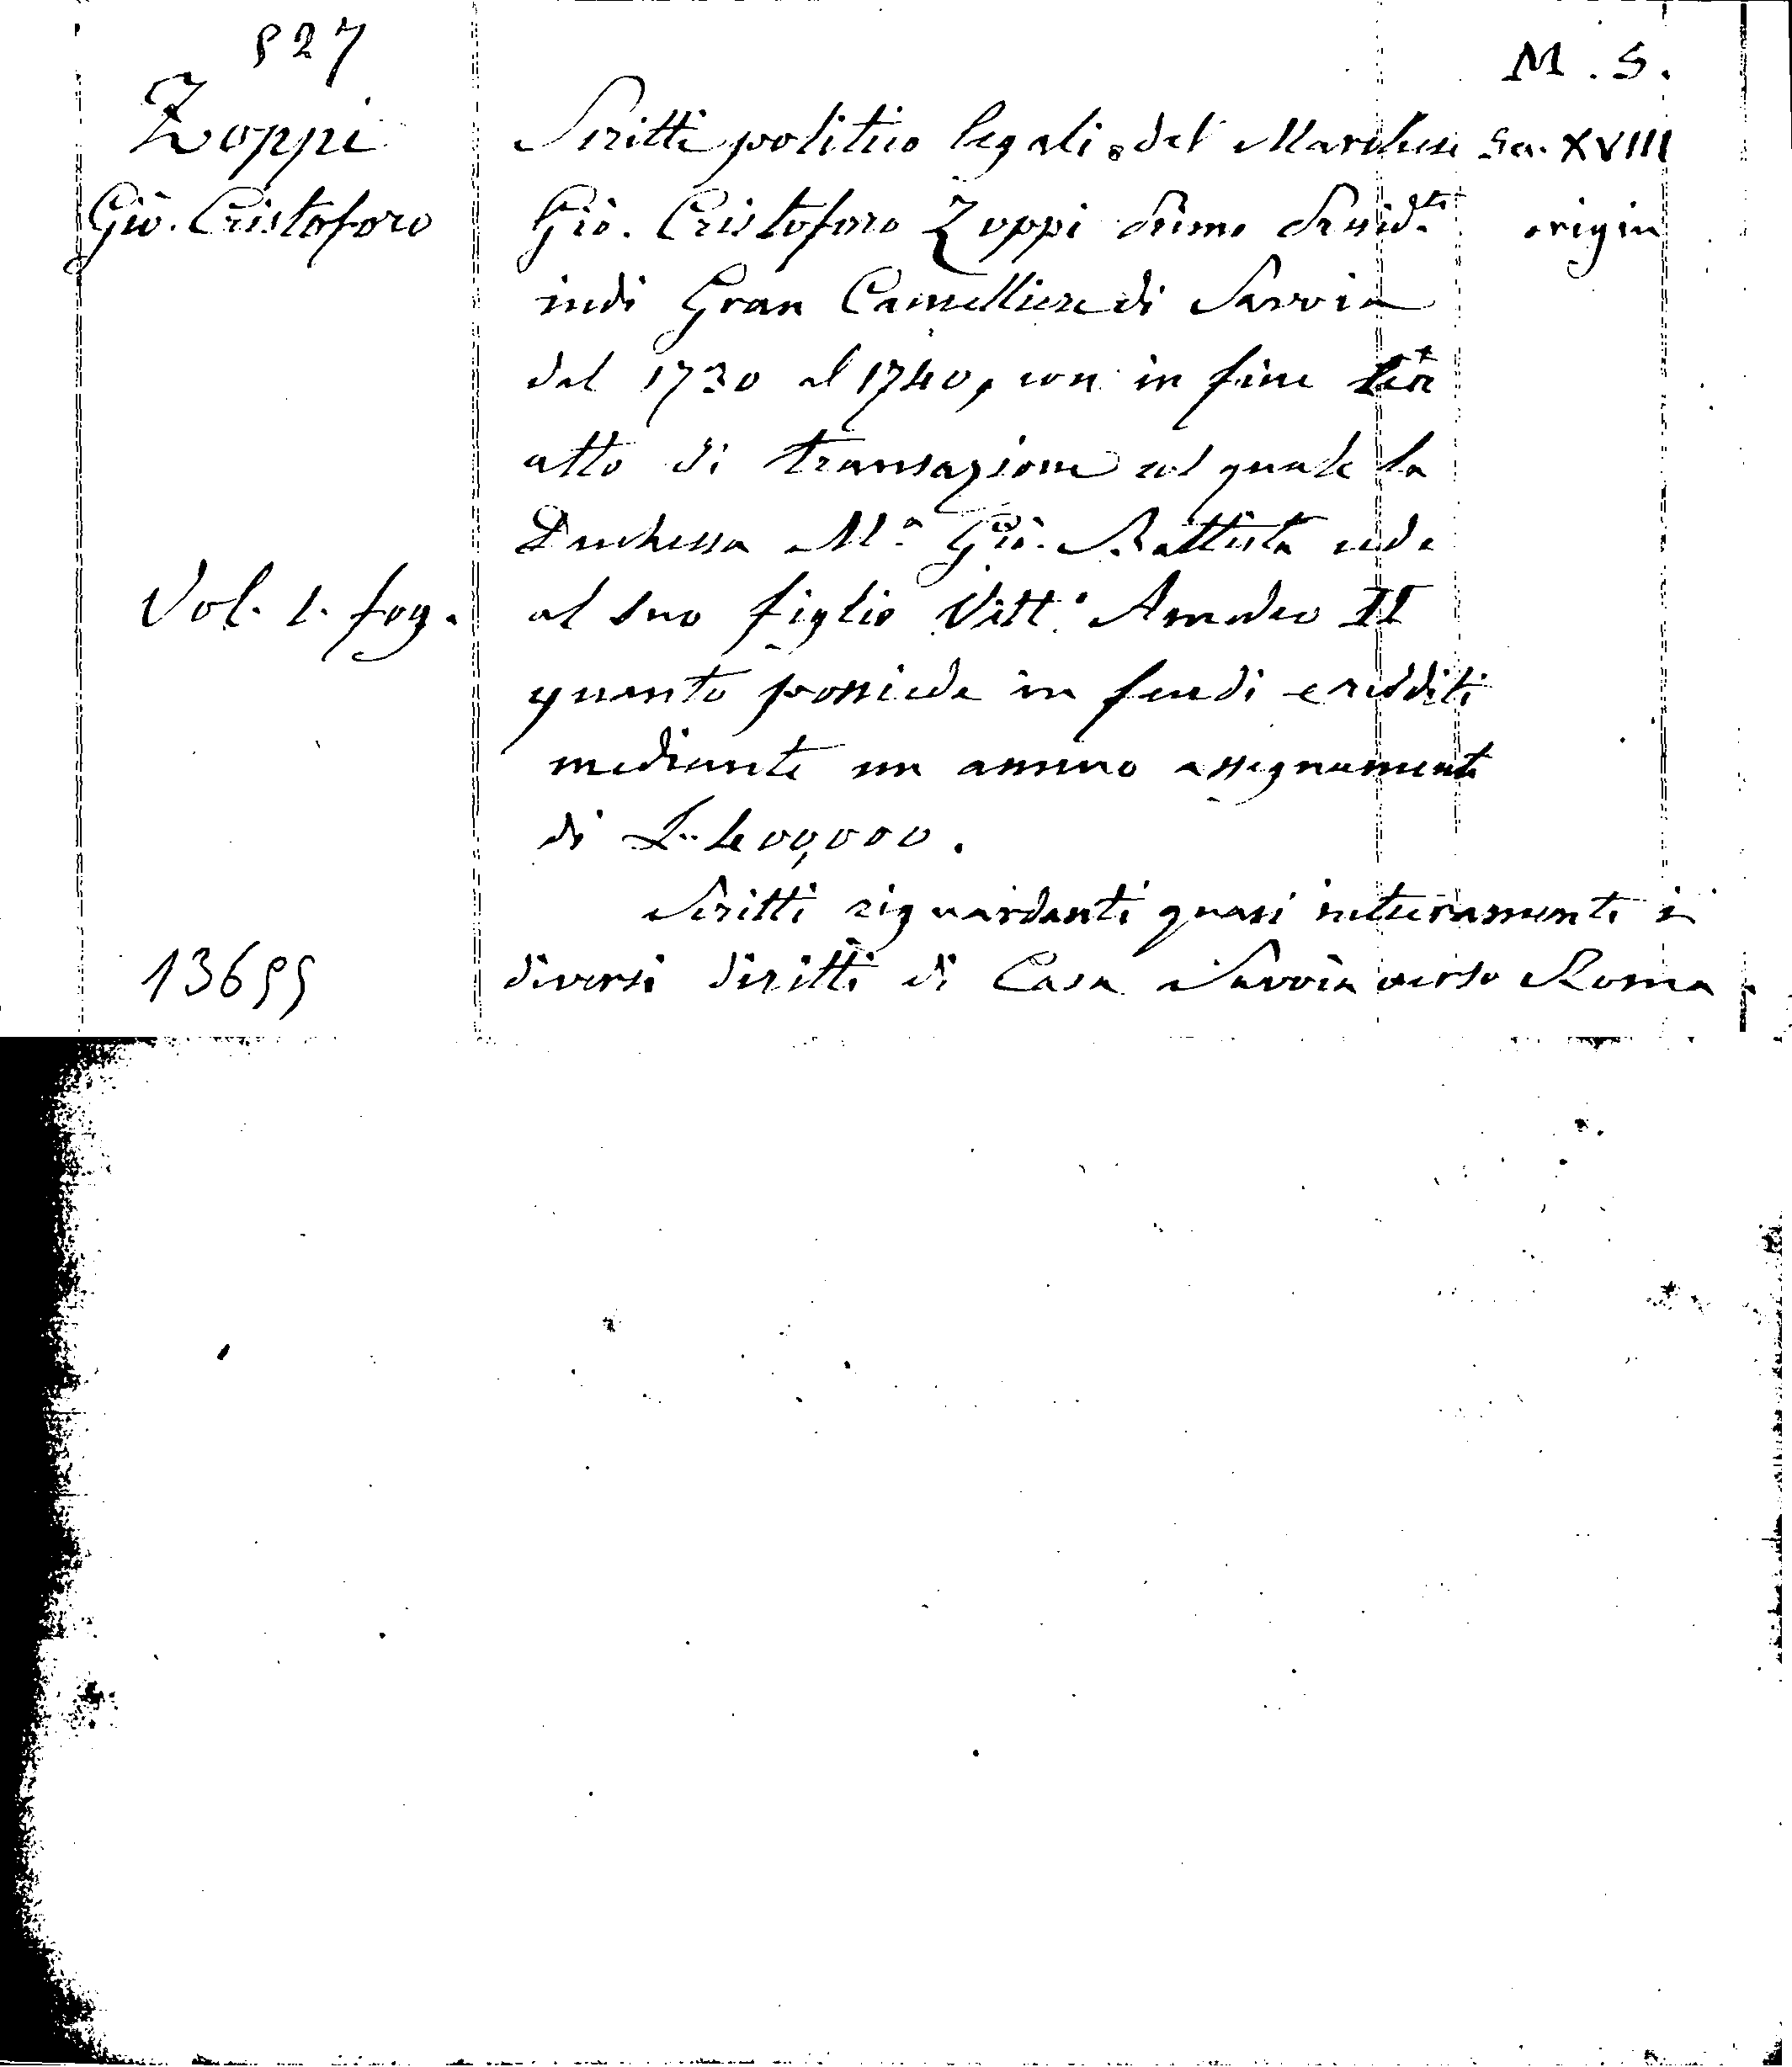 927
M. S.
Zoppi
Gio. Cristoforo
Scritti politico legali del Marchese Sec. XVIII
Gio. Cristoforo Zoppi Primo Presid.te origin
indi Gran Cancelliere di Savoia
dal 1730 al 1740, con in fine
atto di transazione col quale la
Duchessa M.a Gio. Battista cede
Vol. 1. fog. al suo figlio Vitt.o Amedeo II
quanto possiede in feudi e redditi
mediante un annuo assegnamento
di L. 400,000.
Scritti riguardanti quasi interamente i
diversi diritti di Casa Savoia verso Roma.
13699